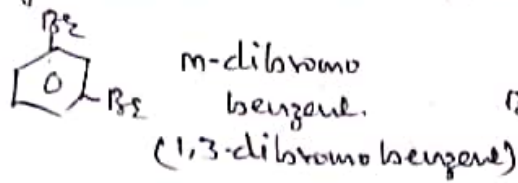 Br
Br
m-dibromo
benzene.
(1,3-dibromobenzene)